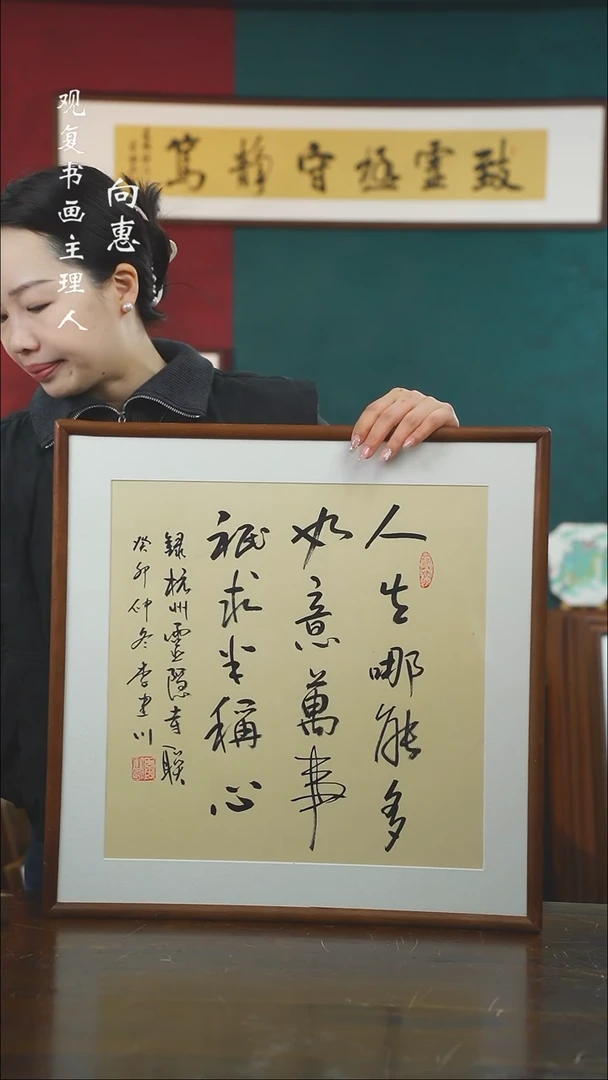 观复书画主理人
向惠
致虛極守靜篤
人生哪能多
如意萬事
祇求半稱心
録杭州靈隱寺聯
癸卯仲冬李建川